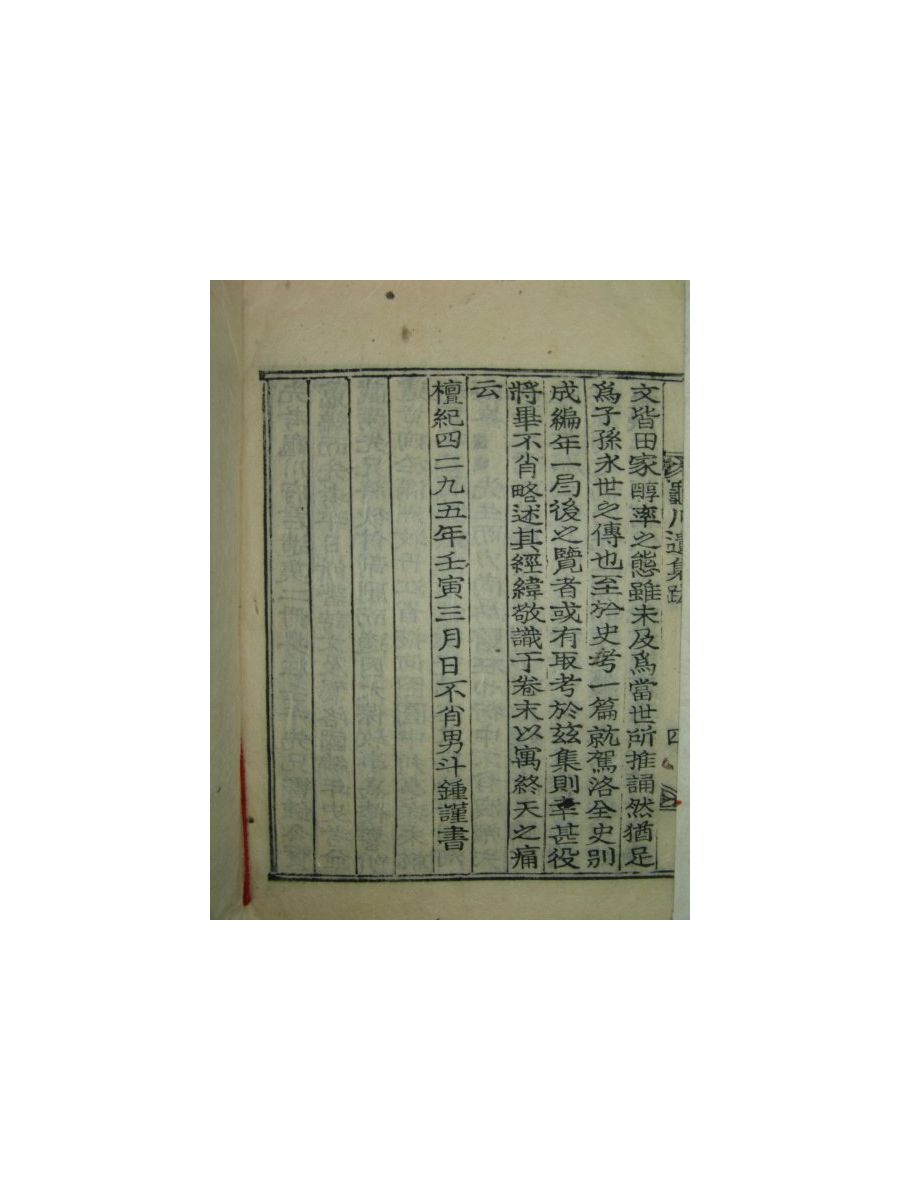 龜川遺集跋
四
文皆田家醇率之態雖未及爲當世所推誦然猶足
爲子孫永世之傳也至於史考一篇就駕洛全史別
成編年一局後之覽者或有取考於玆集則幸甚役
將畢不肖略述其經緯敬識于卷末以寓終天之痛
云
檀紀四二九五年壬寅三月日不肖男斗鍾謹書